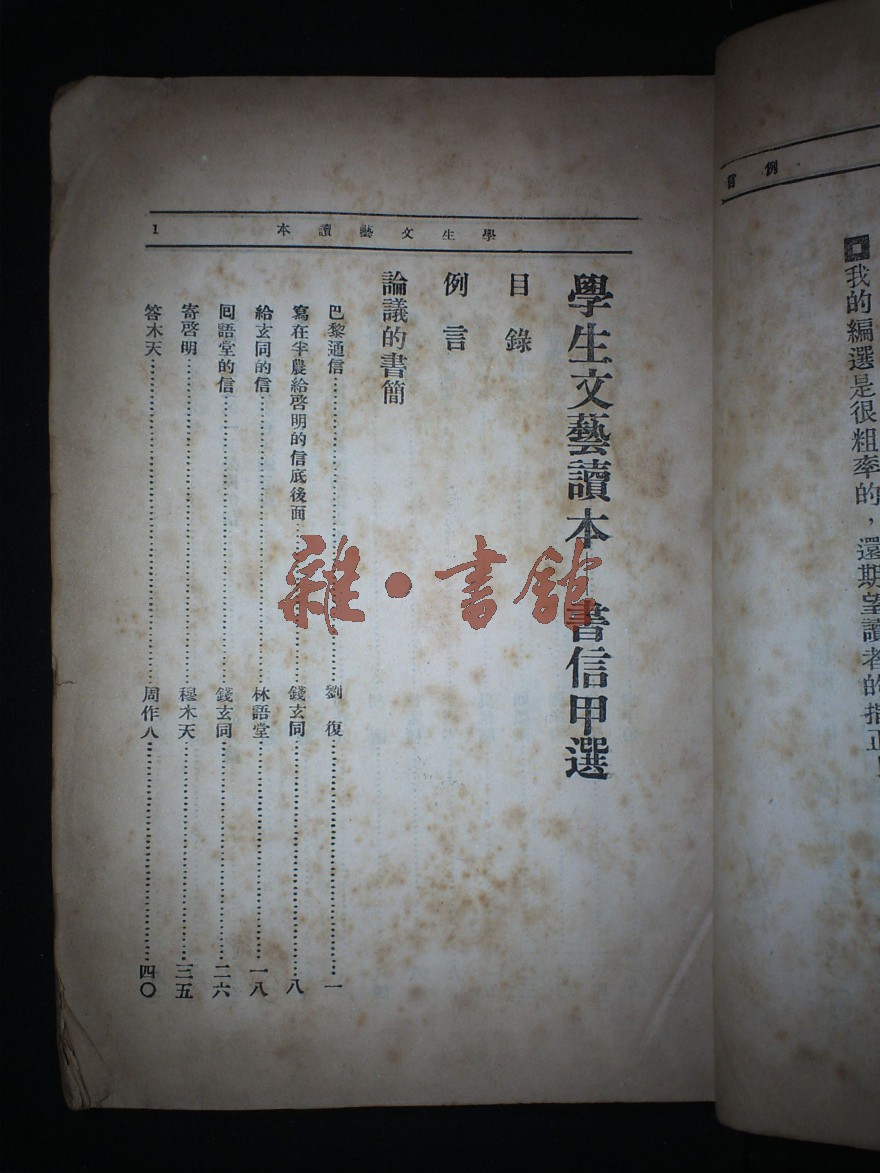 例言
我的編選是很粗率的，還期望讀者的指正
學生文藝讀本 1
學生文藝讀本—書信甲選
目錄
例言
論議的書簡
巴黎通信…………劉復…………一
寫在半農給啓明的信底後面…………錢玄同…………八
給玄同的信…………林語堂…………一八
囘語堂的信…………錢玄同…………二六
寄啓明…………穆木天…………三五
答木天…………周作人…………四〇
雜·書館